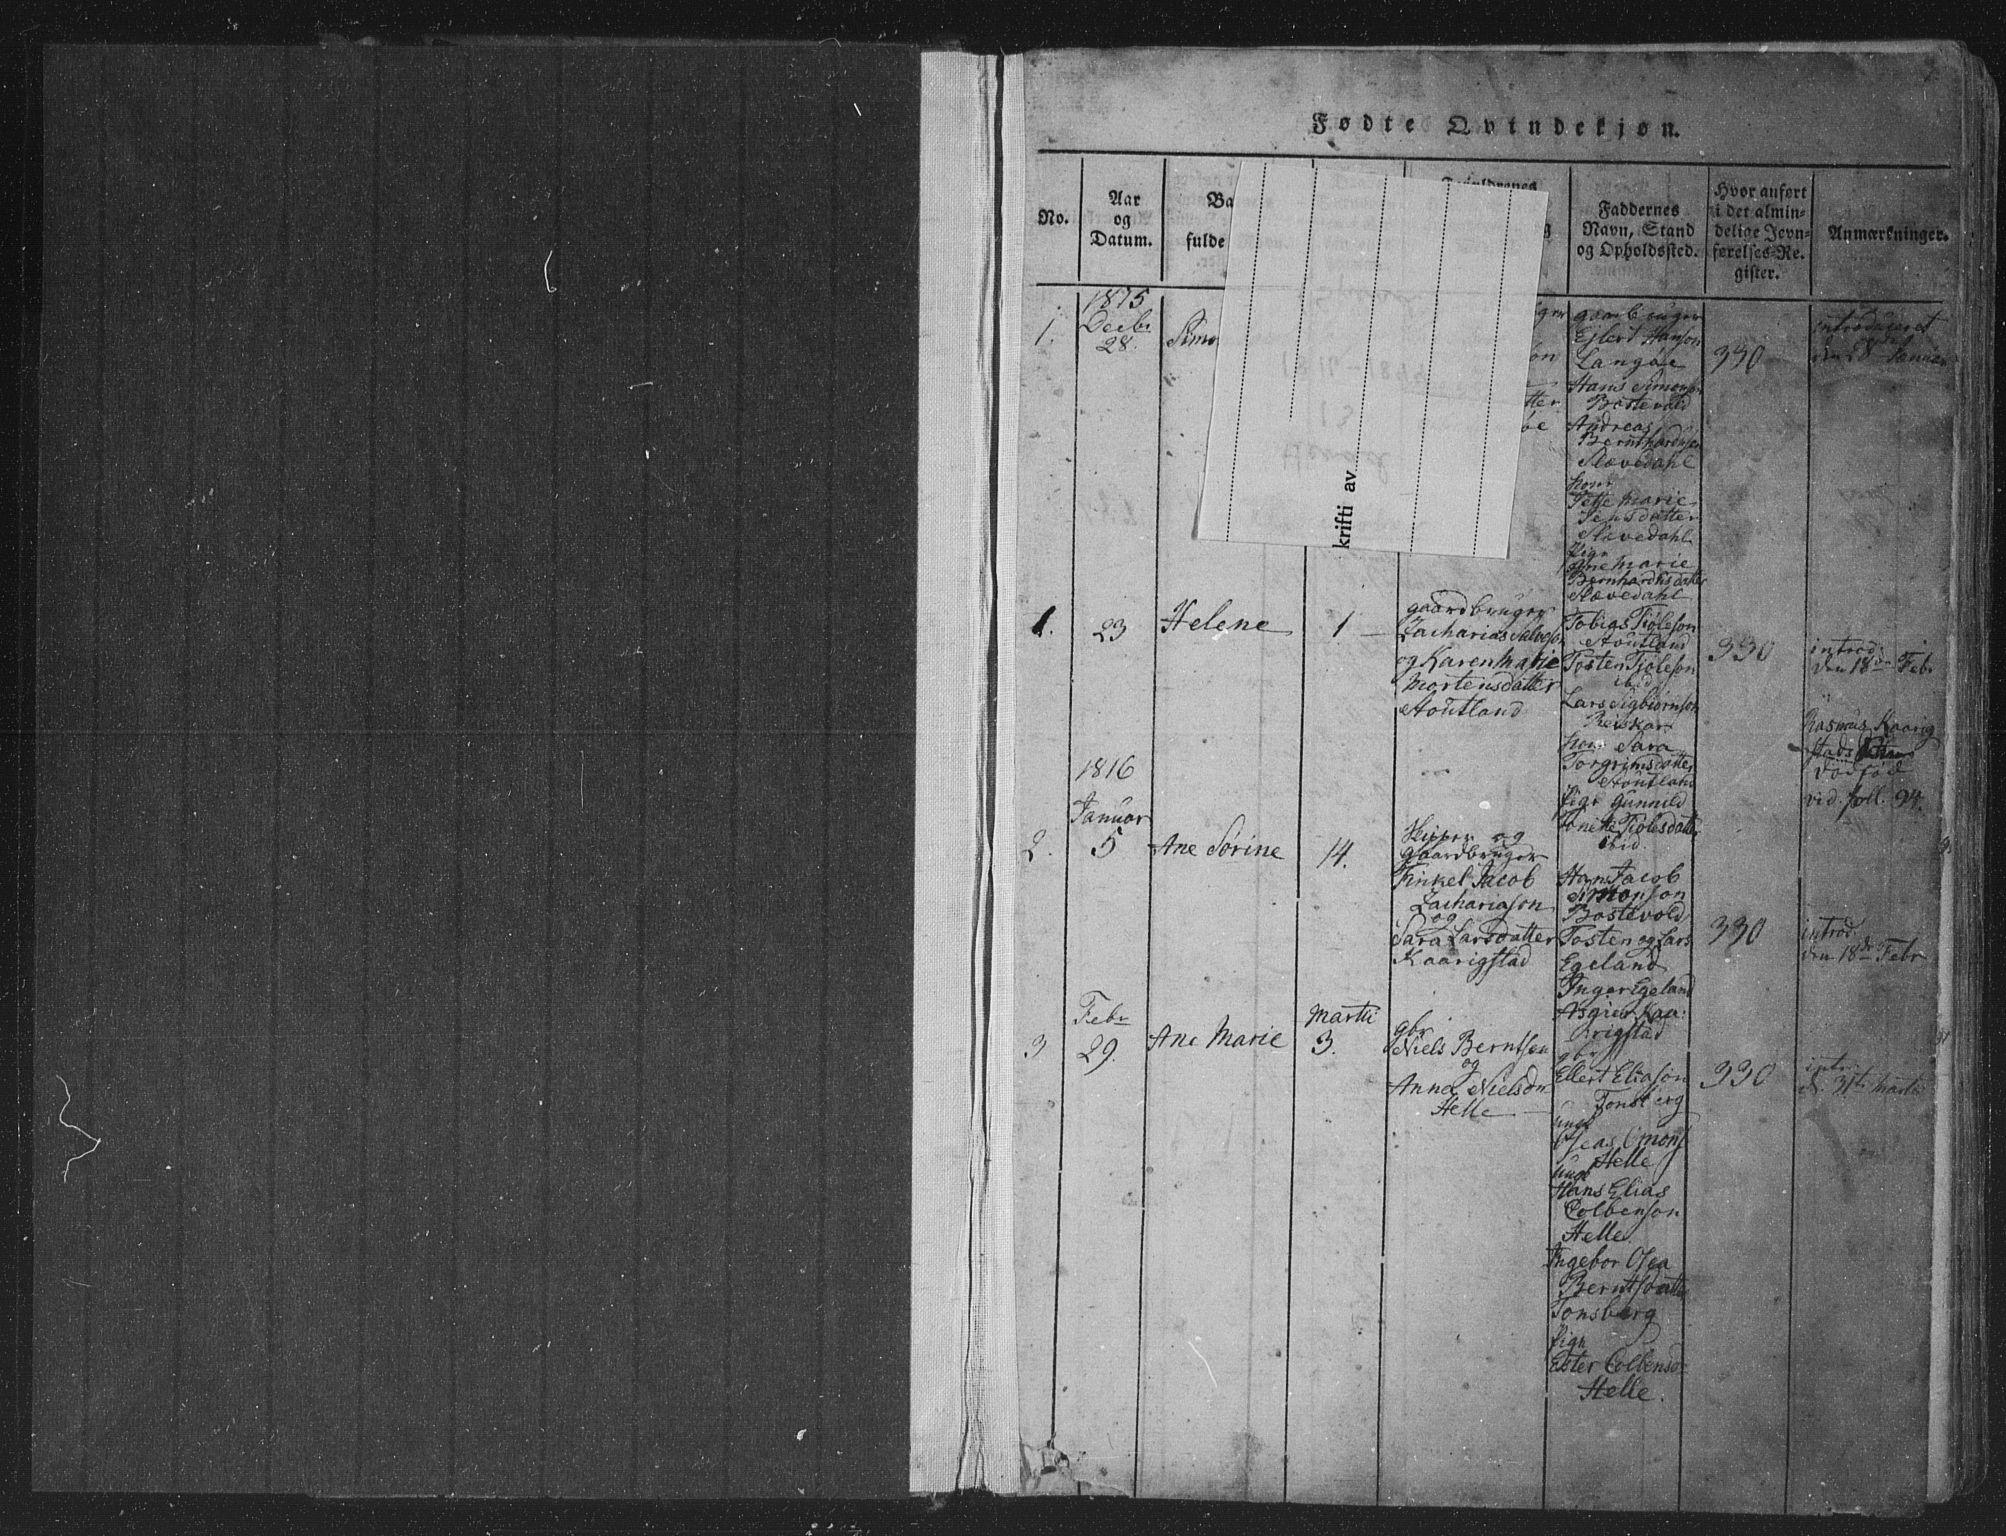 Fødte Qvindekjøn.
No.
Aar
og
Datum.
Ba
fulde
Faddernes
Navn, Stand
og Opholdssted.
Hvor anført
i det almin-
delige Jevn-
førelses-Re-
gister.
Anmærkninger.
krifti av
1.
1815
Decbr
28.
Simo
gaardbruger
Ejlert Hanson
Langøe
Hans Simonson
Bostevold
Andreas
Bernthardsen
Slævedahl
Jette Marie
Jensdatter
Slævedahl
Pige
Ane Marie
Bernhardusdatter
Slævedahl
330
introduceret
1.
23
Helene
1
gaardbruger
Zacharias Salveso
og Karen Marie
Mortensdatter
Stoutland
Tobias Tiøleson
Stoutland
Tosten Tioleson
ibid
Lars Sigbiørnson
Reiskar
Sara
Torgrimsdatter
Stoutland
Pige Gunnild
Tiolesdatter
ibid.
330
introd:
den 18de Febr
Rasmus Kaarig
stads
dødfød
vid. foll. 94.
1816
Januar
2.
5
Ane Sorine
14.
og
gaardbruger
Tinkel Jacob
Zachariason
og
Sara Larsdatter
Kaarigstad
Hans Jacob
Simonson
Bostevold
Tosten og Lars
Egeland
Inger Egeland
Asgier Kaa-
rigstad
330
introd.
den 18de Febr
Febr
3
29.
Ane Marie
Martii
3.
gbr
Niels Berntsen
og
Anne Nielsdr
Helle
gbr
Ellert Eliason
Tonsberg
ungk
Oseas Omons
Helle
ungk
Hans Elias
Colbenson
Helle
Ingebor Osea
Berntsdatter
Tonsberg
Pige
Ester Colbensd:
Helle.
330
intr.
d. 31te Martii